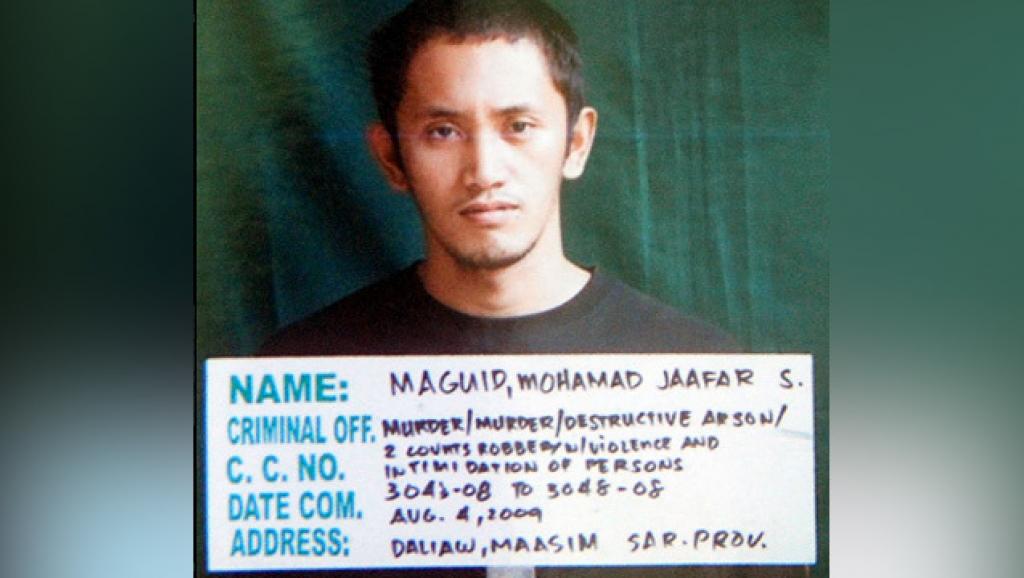 NAME: MAGUID, MOHAMAD JAAFAR S.
CRIMINAL OFF. MURDER/MURDER/DESTRUCTIVE ARSON/
2 COUNTS ROBBERY W/VIOLENCE AND
C. C. NO. INTIMIDATION OF PERSONS
3043-08 TO 3048-08
DATE COM. AUG. 4, 2009
ADDRESS: DALIAW, MAASIM SAR. PROV.